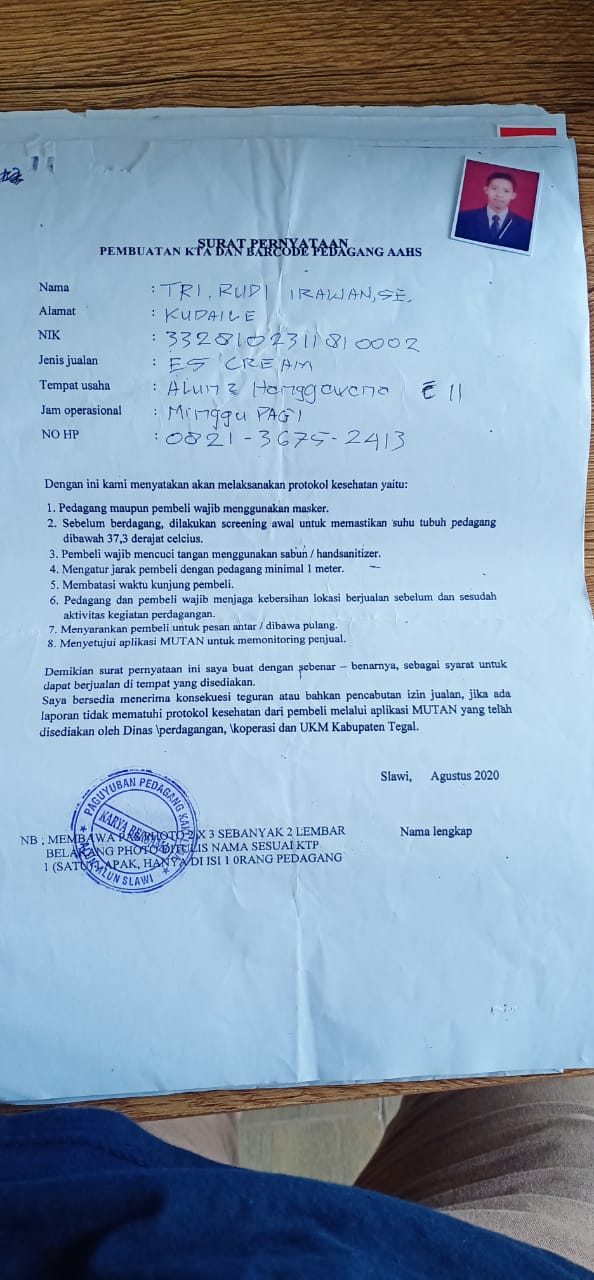 SURAT PERNYATAAN
PEMBUATAN KTA DAN BARCODE PEDAGANG AAHS
Nama : TRI, RUDI IRAWAN, SE.
Alamat : KUDAILE
NIK : 3328102311810002
Jenis jualan : ES CREAM
Tempat usaha : Alun2 Hanggawana E 11
Jam operasional : Minggu PAGI
NO HP : 0821-3675-2413
Dengan ini kami menyatakan akan melaksanakan protokol kesehatan yaitu:
1. Pedagang maupun pembeli wajib menggunakan masker.
2. Sebelum berdagang, dilakukan screening awal untuk memastikan suhu tubuh pedagang
dibawah 37,3 derajat celcius.
3. Pembeli wajib mencuci tangan menggunakan sabun / handsanitizer.
4. Mengatur jarak pembeli dengan pedagang minimal 1 meter.
5. Membatasi waktu kunjung pembeli.
6. Pedagang dan pembeli wajib menjaga kebersihan lokasi berjualan sebelum dan sesudah
aktivitas kegiatan perdagangan.
7. Menyarankan pembeli untuk pesan antar / dibawa pulang.
8. Menyetujui aplikasi MUTAN untuk memonitoring penjual.
Demikian surat pernyataan ini saya buat dengan sebenar – benarnya, sebagai syarat untuk
dapat berjualan di tempat yang disediakan.
Saya bersedia menerima konsekuesi teguran atau bahkan pencabutan izin jualan, jika ada
laporan tidak mematuhi protokol kesehatan dari pembeli melalui aplikasi MUTAN yang telah
disediakan oleh Dinas \perdagangan, \koperasi dan UKM Kabupaten Tegal.
Slawi, Agustus 2020
PAGUYUBAN PEDAGANG
KARYA
ALUN SLAWI
NB ; MEMBAWA PAS PHOTO 2 X 3 SEBANYAK 2 LEMBAR
BELAKANG PHOTO DITULIS NAMA SESUAI KTP
1 (SATU) LAPAK, HANYA DI ISI 1 0RANG PEDAGANG
Nama lengkap